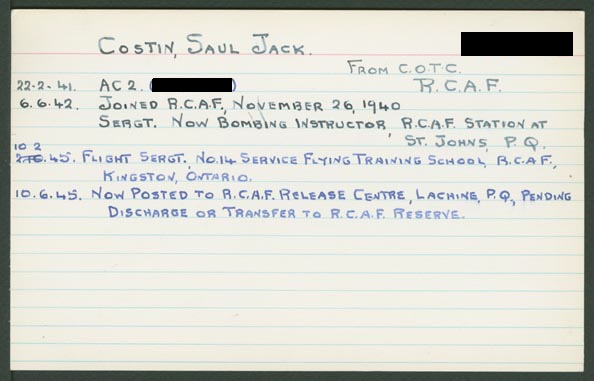 COSTIN, SAUL JACK.
FROM C.O.T.C.
22-2-41. AC 2. ( ) R.C.A.F.
6.6.42. JOINED R.C.A.F., NOVEMBER 26, 1940
SERGT. NOW BOMBING INSTRUCTOR, R.C.A.F. STATION AT
ST. JOHNS, P.Q.
10 2
.45. FLIGHT SERGT., NO.14 SERVICE FLYING TRAINING SCHOOL, R.C.A.F.,
KINGSTON, ONTARIO.
10.6.45. NOW POSTED TO R.C.A.F. RELEASE CENTRE, LACHINE, P.Q., PENDING
DISCHARGE OR TRANSFER TO R.C.A.F. RESERVE.